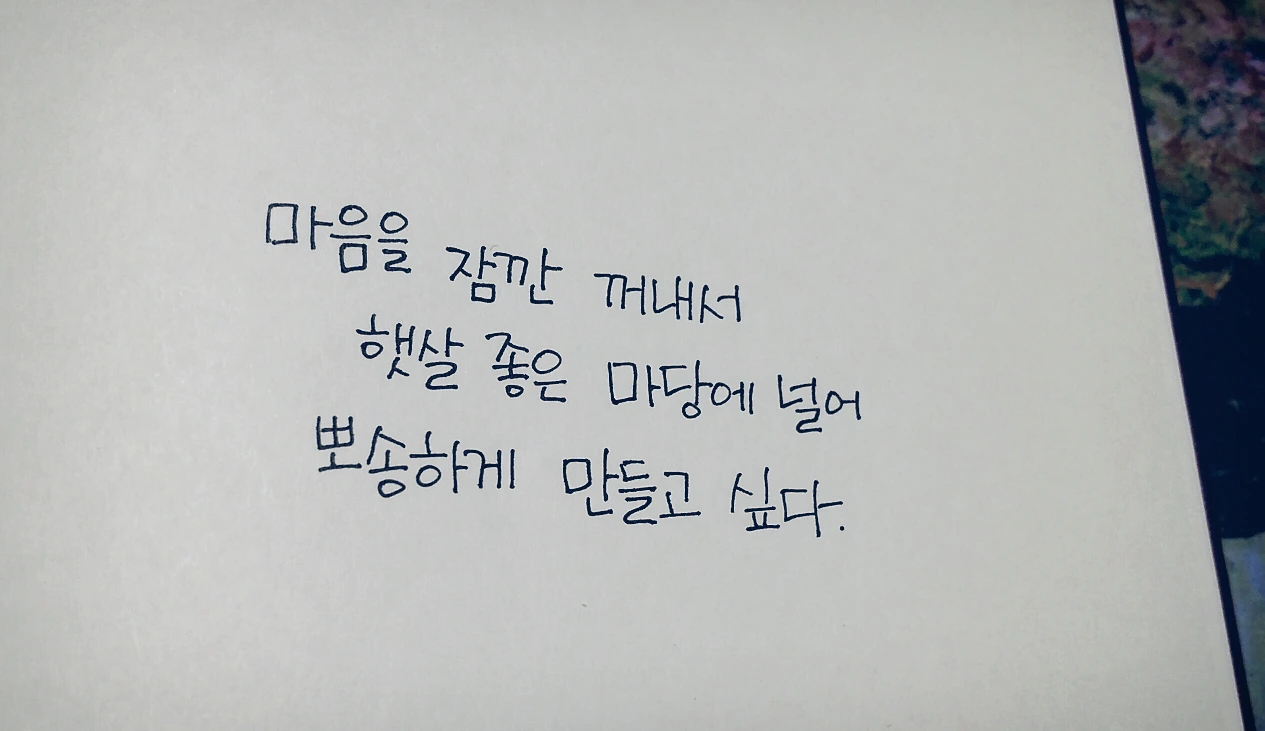 마음을 잠깐 꺼내서
햇살 좋은 마당에 널어
뽀송하게 만들고 싶다.